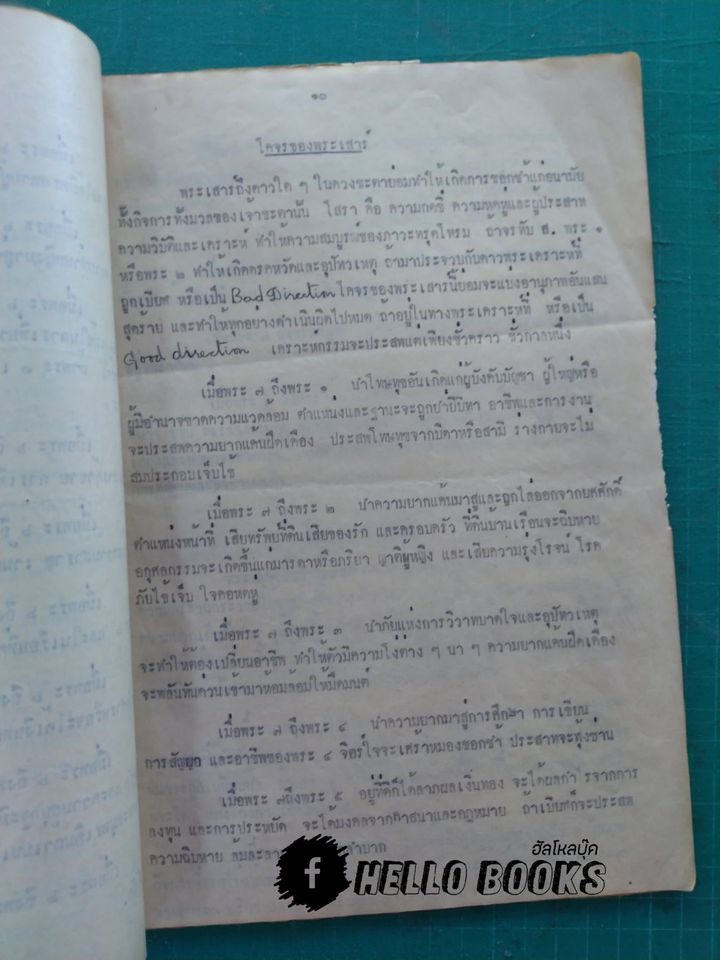 ๑๐
โคจรของพระเสาร์
พระเสารถึงดาวใด ๆ ในดวงชะตาย่อมทำให้เกิดการชอกช้ำแก่อนามัย
ทั้งกิจการทั้งมวลของเจ้าชะตานั้น โสรา คือ ความกดขี่ ความหดหู่และผู้ประสาท
ความวิบัติและเคราะห์ ทำให้ความสมบูรณ์ของภาวะทรุดโทรม ถ้าจรทับ ส. พระ ๑
หรือพระ ๒ ทำให้เกิดรคหวัดและอุปัทวเหตุ ถามาประจวบกับดาวพระเคราะห์ที่
ถูกเบียฬ หรือเป็น Bad Direction โคจรของพระเสารนี้ย่อมจะแบ่งอานุภาพอันแสน
สุดร้าย และทำให้ทุกอย่างดำเนินผิดไปหมด ถ้าอยู่ในทางพระเคราะห์ที่ หรือเป็น
Good direction เคราะห์กรรมจะประสพแต่เพียงชั่วคราว ชั่วกาลหนึ่ง
เมื่อพระ ๗ ถึงพระ ๑ นำโทษทุขอันเกิดแก่ผู้บังคับบัญชา ผู้ใหญ่หรือ
ผู้มีอำนาจขาดความแวดล้อม ตำแหน่งและฐานะจะถูกย่ำยีบีทา อาชีพและการงาน
จะประสพความยากแค้นฝืดเคือง ประสพโทษทุขจากบิดาหรือสามี ร่างกายจะไม่
สมประกอบเจ็บไข้
เมื่อพระ ๗ ถึงพระ ๒ นำความยากแค้นมาสู่และถูกไล่ออกจากยศศักดิ์
ตำแหน่งหน้าที่ เสียทรัพย์ที่ดินเสียของรัก และครอบครัว ที่ดินบ้านเรือนจะฉิบหาย
อกุศลกรรมจะเกิดขึ้นแก่มารดาหรือภริยา ญาติผู้หญิง และเสียความรุ่งโรจน์ โรค
ภัยไข้เจ็บ ใจคอหดหู่
เมื่อพระ ๗ ถึงพระ ๓ นำภัยแห่งการวิวาทบาดใจและอุปัทวเหตุ
จะทำให้ต้องเปลี่ยนอาชีพ ทำให้ตัวมีความโง่ต่าง ๆ นา ๆ ความยากแค้นฝืดเคือง
จะพลันทันด่วนเข้ามาห้อมล้อมให้มืดมนต์
เมื่อพระ ๗ ถึงพระ ๔ นำความยากมาสู่การศึกษา การเขียน
การสัญญา และอาชีพของพระ ๔ จิตร์ใจจะเศร้าหมองชอกช้ำ ประสาทจะฟุ้งซ่าน
เมื่อพระ ๗ถึงพระ ๕ อยู่ที่ดีก็ได้ลาภผลเงินทอง จะได้ผลกำ รจากการ
ลงทุน และการประหยัด จะได้มงคลจากศาสนาและกฎหมาย ถ้าเบียฬก็จะประสพ
ความฉิบหาย ล้มละลา ลำบาก
ฮัลโหลบุ๊ค
HELLO BOOKS